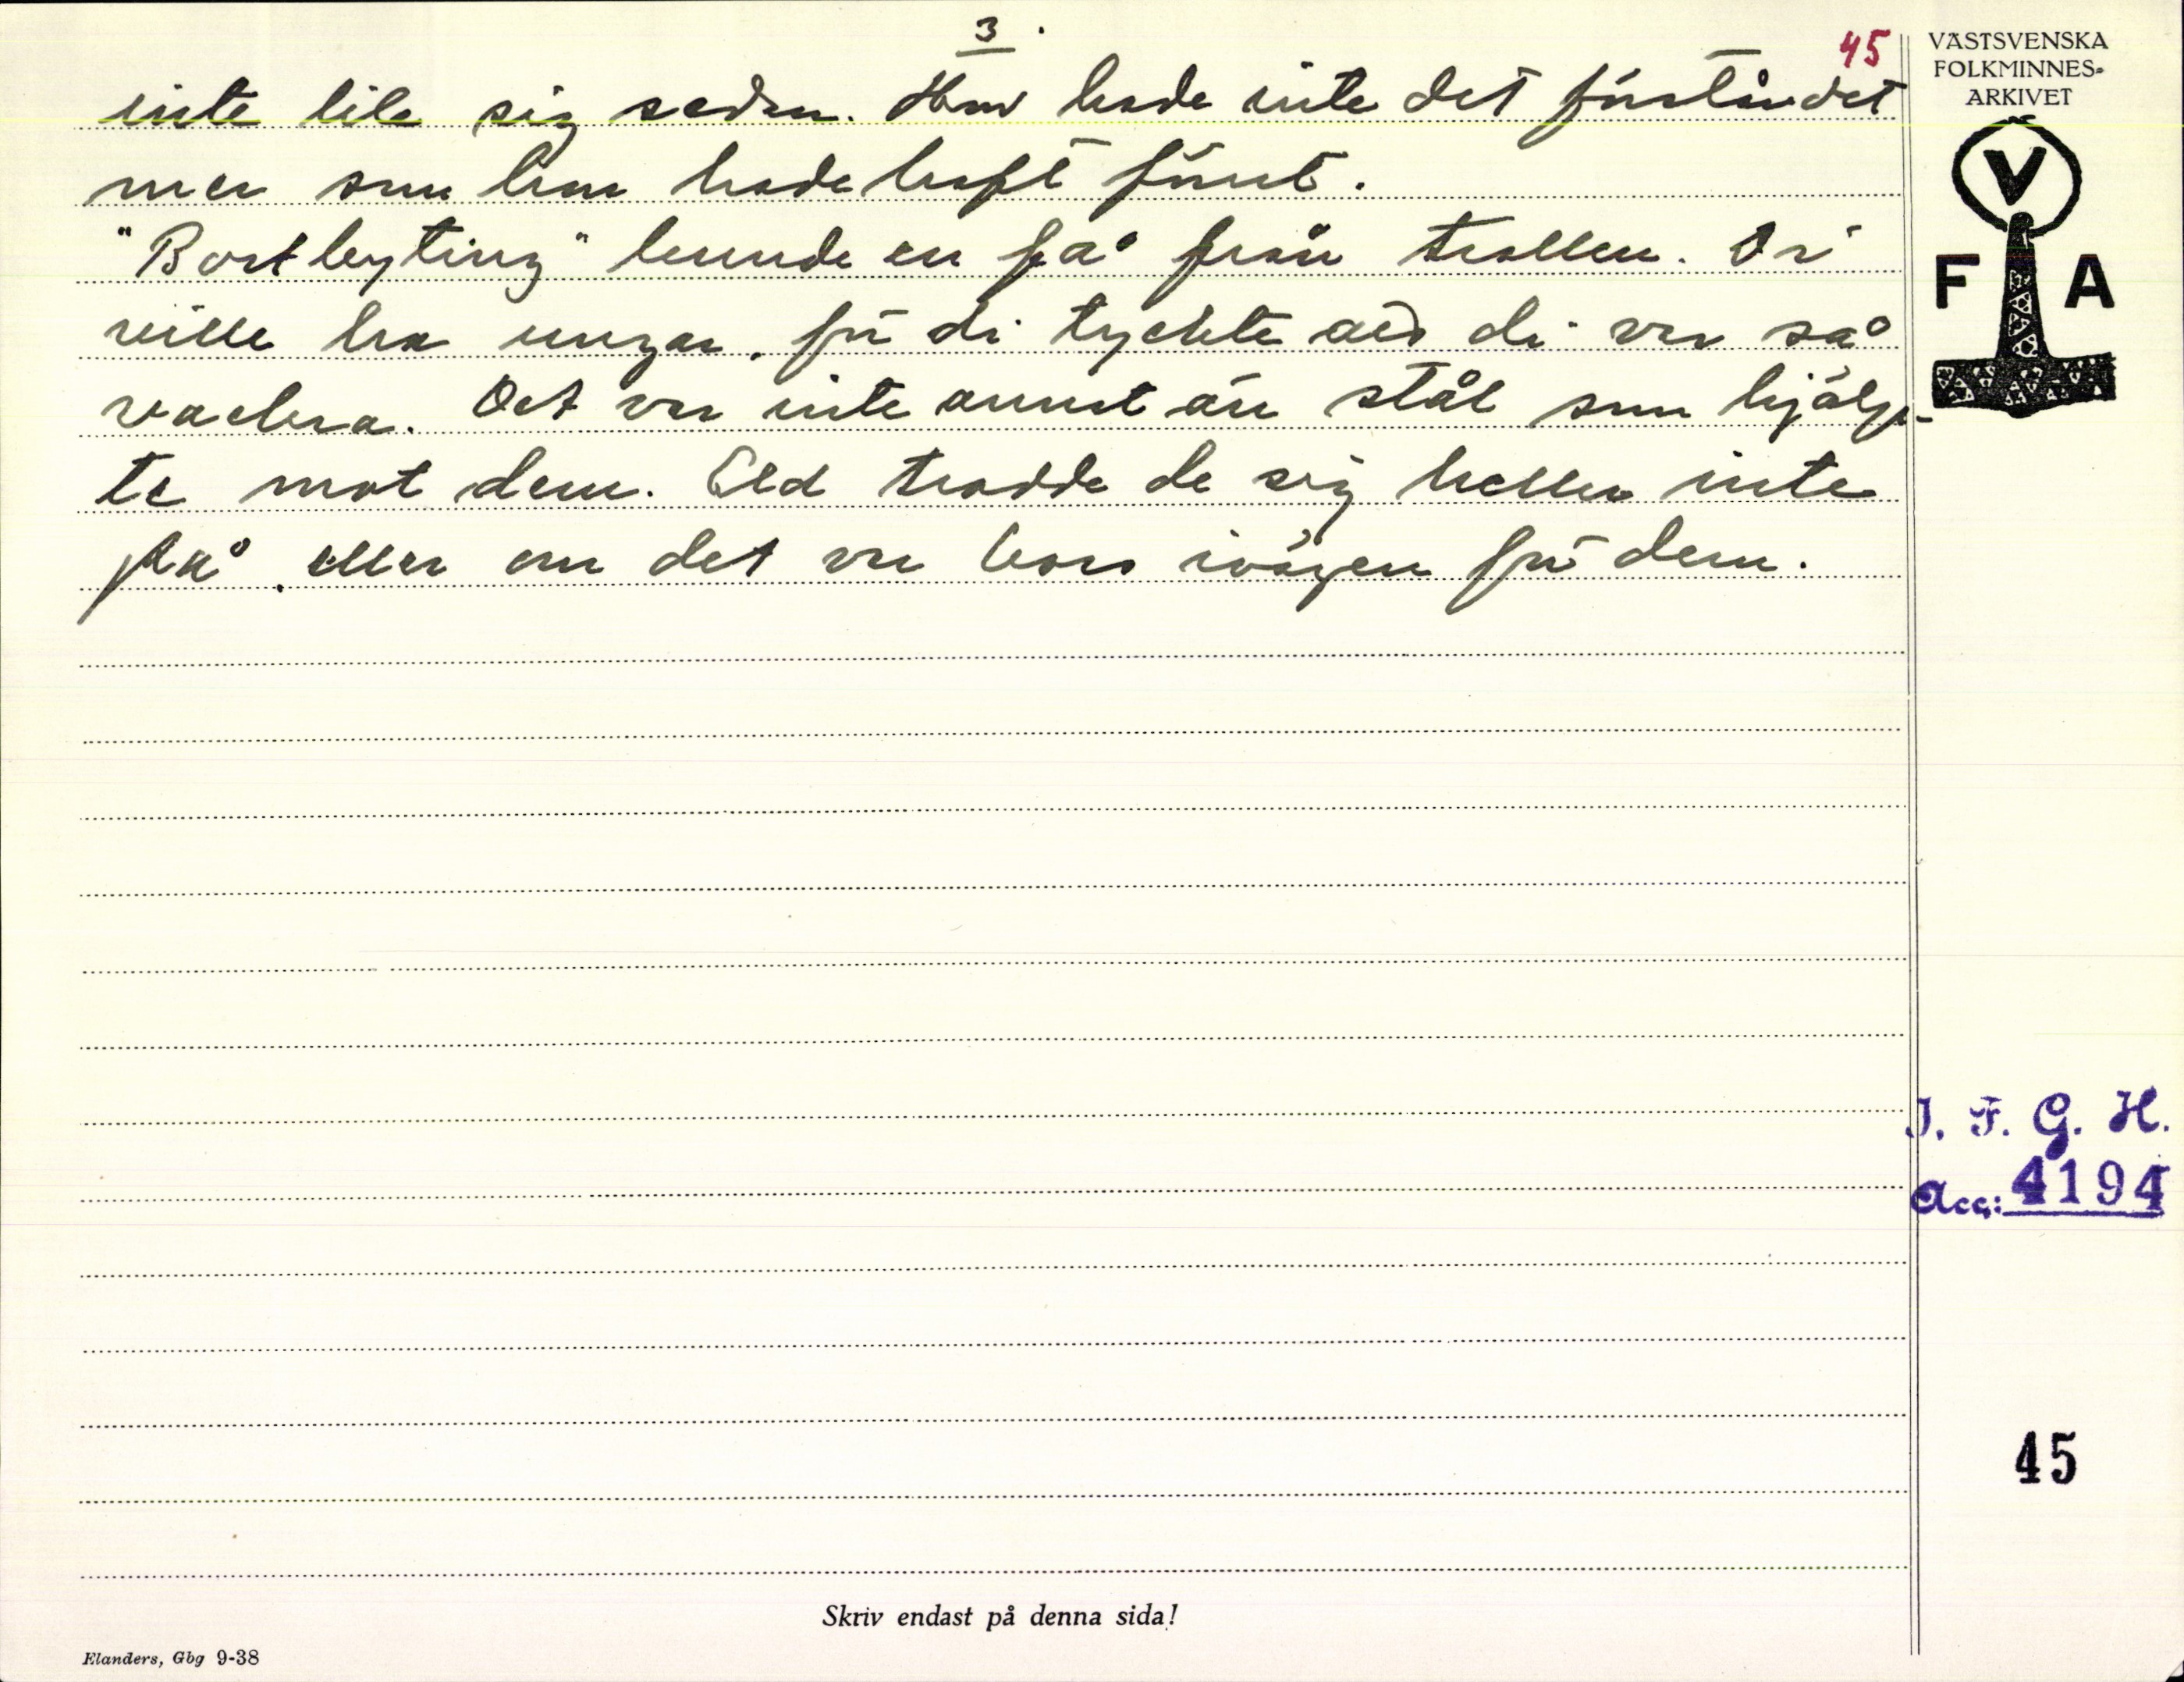 3.
45
inte lik sig sedan. Han hade inte det förståndet
mer som han hade haft förut.
"Bortbyting" kunde en få från trollen. Di
ville ha ungar, för di tyckte att di var så
vackra. Det var inte annat än stål som hjälp-
te mot dem. Eld trodde de sig heller inte
på, eller om det var kors ivägen för dem.
VÄSTSVENSKA
FOLKMINNES-
ARKIVET
V
F A
I. F. G. H.
Acc: 4194
45
Skriv endast på denna sida!
Elanders, Gbg 9-38